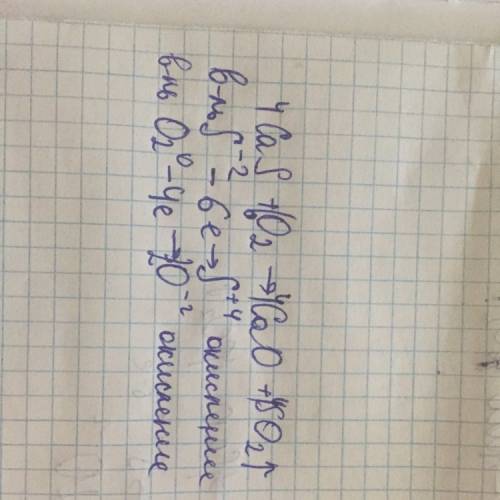 4CaS + 6O₂ → 4CaO + 4SO₂↑
в-ль S⁻² - 6e → S⁺⁴ окисление
в-ль O₂⁰ - 4e → 2O⁻² окисление